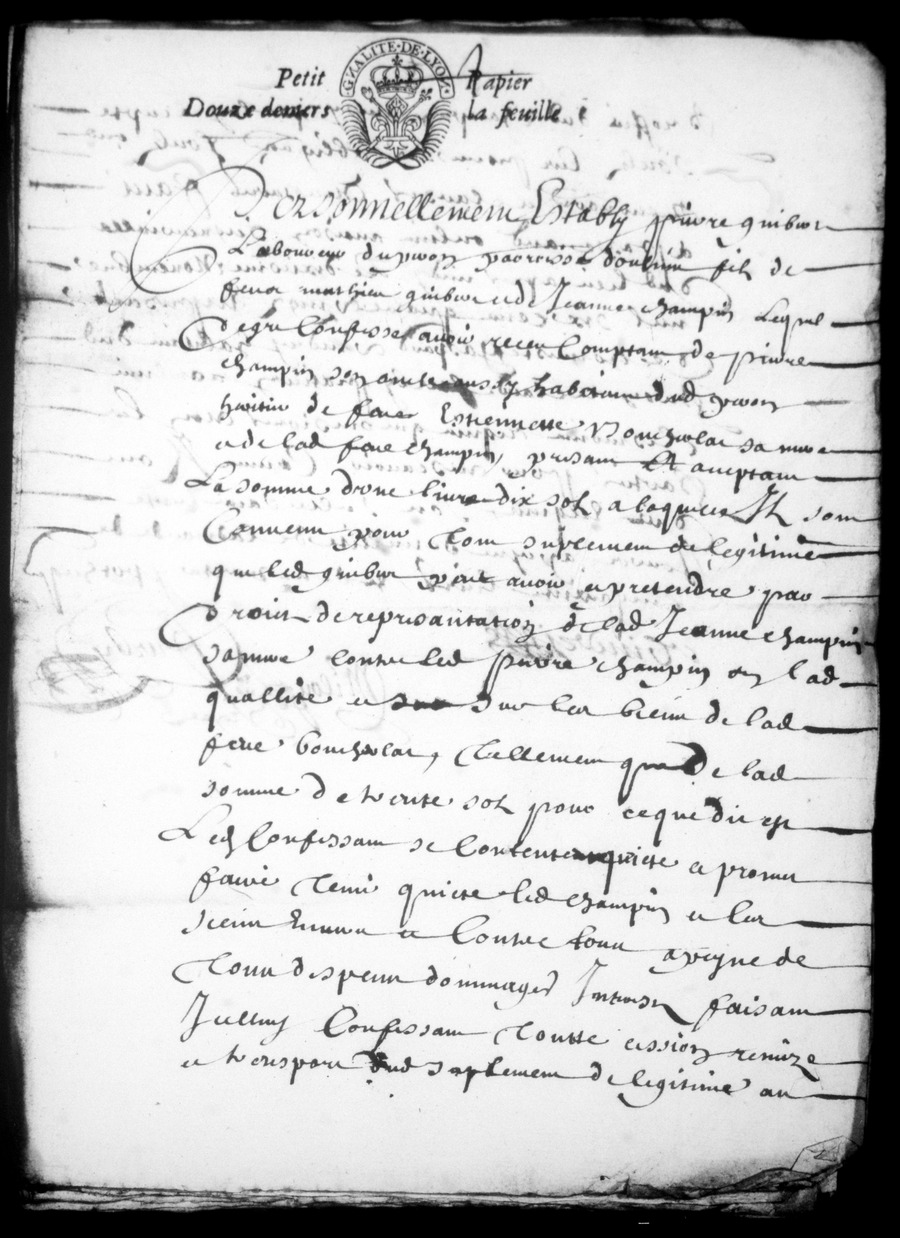 GNALITE·DE·LYON
Petit Papier
Douze deniers la feuille
Personnellement Estably pierre guibert
Laboureur du paroisse fils de
feux mathieu guibert et de Jeanne champin Lequel
de gre Confesse avoir receu Comptant de pierre
champin son oncle aussy habitant dud
heritier de feue Estiennette sa mere
et de lad feue champin, presant Et aceptant
La somme dune livre dix solz a laquelle Ilz sont
Convenu pour tout suplement de legitime
que led guibert peut avoir et pretendre par
droit de representation de lad Jeanne champin
sa mere contre led pierre champin en lad
quallite et sur les biens de lad
feue tellement que de lad
somme de trente solz pour ce que dit est
Led Confessant se Contente quicte et promet
faire tenir quicte led champin et les
siens Envers et Contre tous a peyne de
tous despens dommages Interestz faisant
Icelluy Confessant toutte cession remize
et transport dud suplement de legitime au